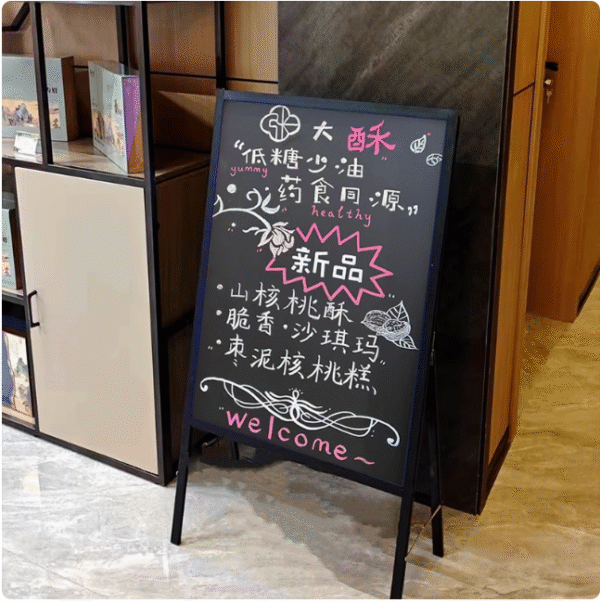 大酥
“低糖少油
yummy
药食同源”
healthy
新品
·山核桃酥
·脆香·沙琪玛
·枣泥核桃糕
welcome~